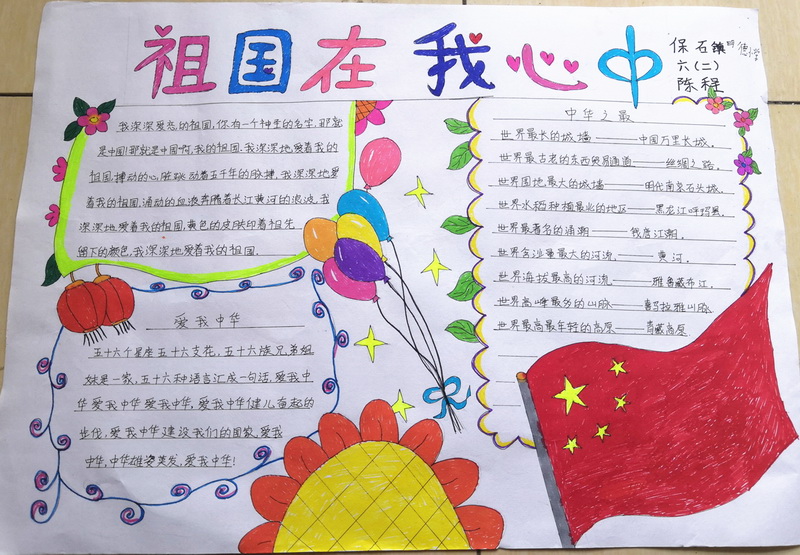 祖国在我心中
保石镇中德学
六(二)
陈程
我深深爱恋的祖国,你有一个神圣的名字,那就
是中国!那就是中国啊,我的祖国.我深深地爱着我的
祖国,搏动的心脏跳动着五千年的脉搏,我深深地爱
着我的祖国,涌动的血液奔腾着长江黄河的浪波,我
深深地爱着我的祖国,黄色的皮肤印着祖先
留下的颜色,我深深地爱着我的祖国.
爱我中华
五十六个星座五十六支花,五十六族兄弟姐
妹是一家,五十六种语言汇成一句话,爱我中
华爱我中华爱我中华,爱我中华健儿奋起的
步伐,爱我中华建设我们的国家,爱我
中华,中华雄姿英发,爱我中华!
中华之最
世界最长的城墙——中国万里长城.
世界最古老的东西贸易通道——丝绸之路.
世界围地最大的城墙——明代南京石头城.
世界水稻种植最北的地区——黑龙江呼玛县.
世界最著名的涌潮——钱唐江潮.
世界含沙量最大的河流——黄河.
世界海拔最高的河流——雅鲁藏布江.
世界高峰最多的山脉——喜马拉雅山脉.
世界最高最年轻的高原——青藏高原.